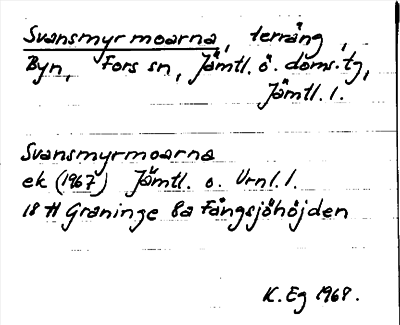 Svansmyrmoarna, terräng,
Byn, Fors sn, Jämtl. ö. doms.tg,
Jämtl. l.
Svansmyrmoarna
ek (1967) Jämtl. o. Vrnl. l.
18 H Graninge 8a Fångsjöhöjden
K. Eg 1968.